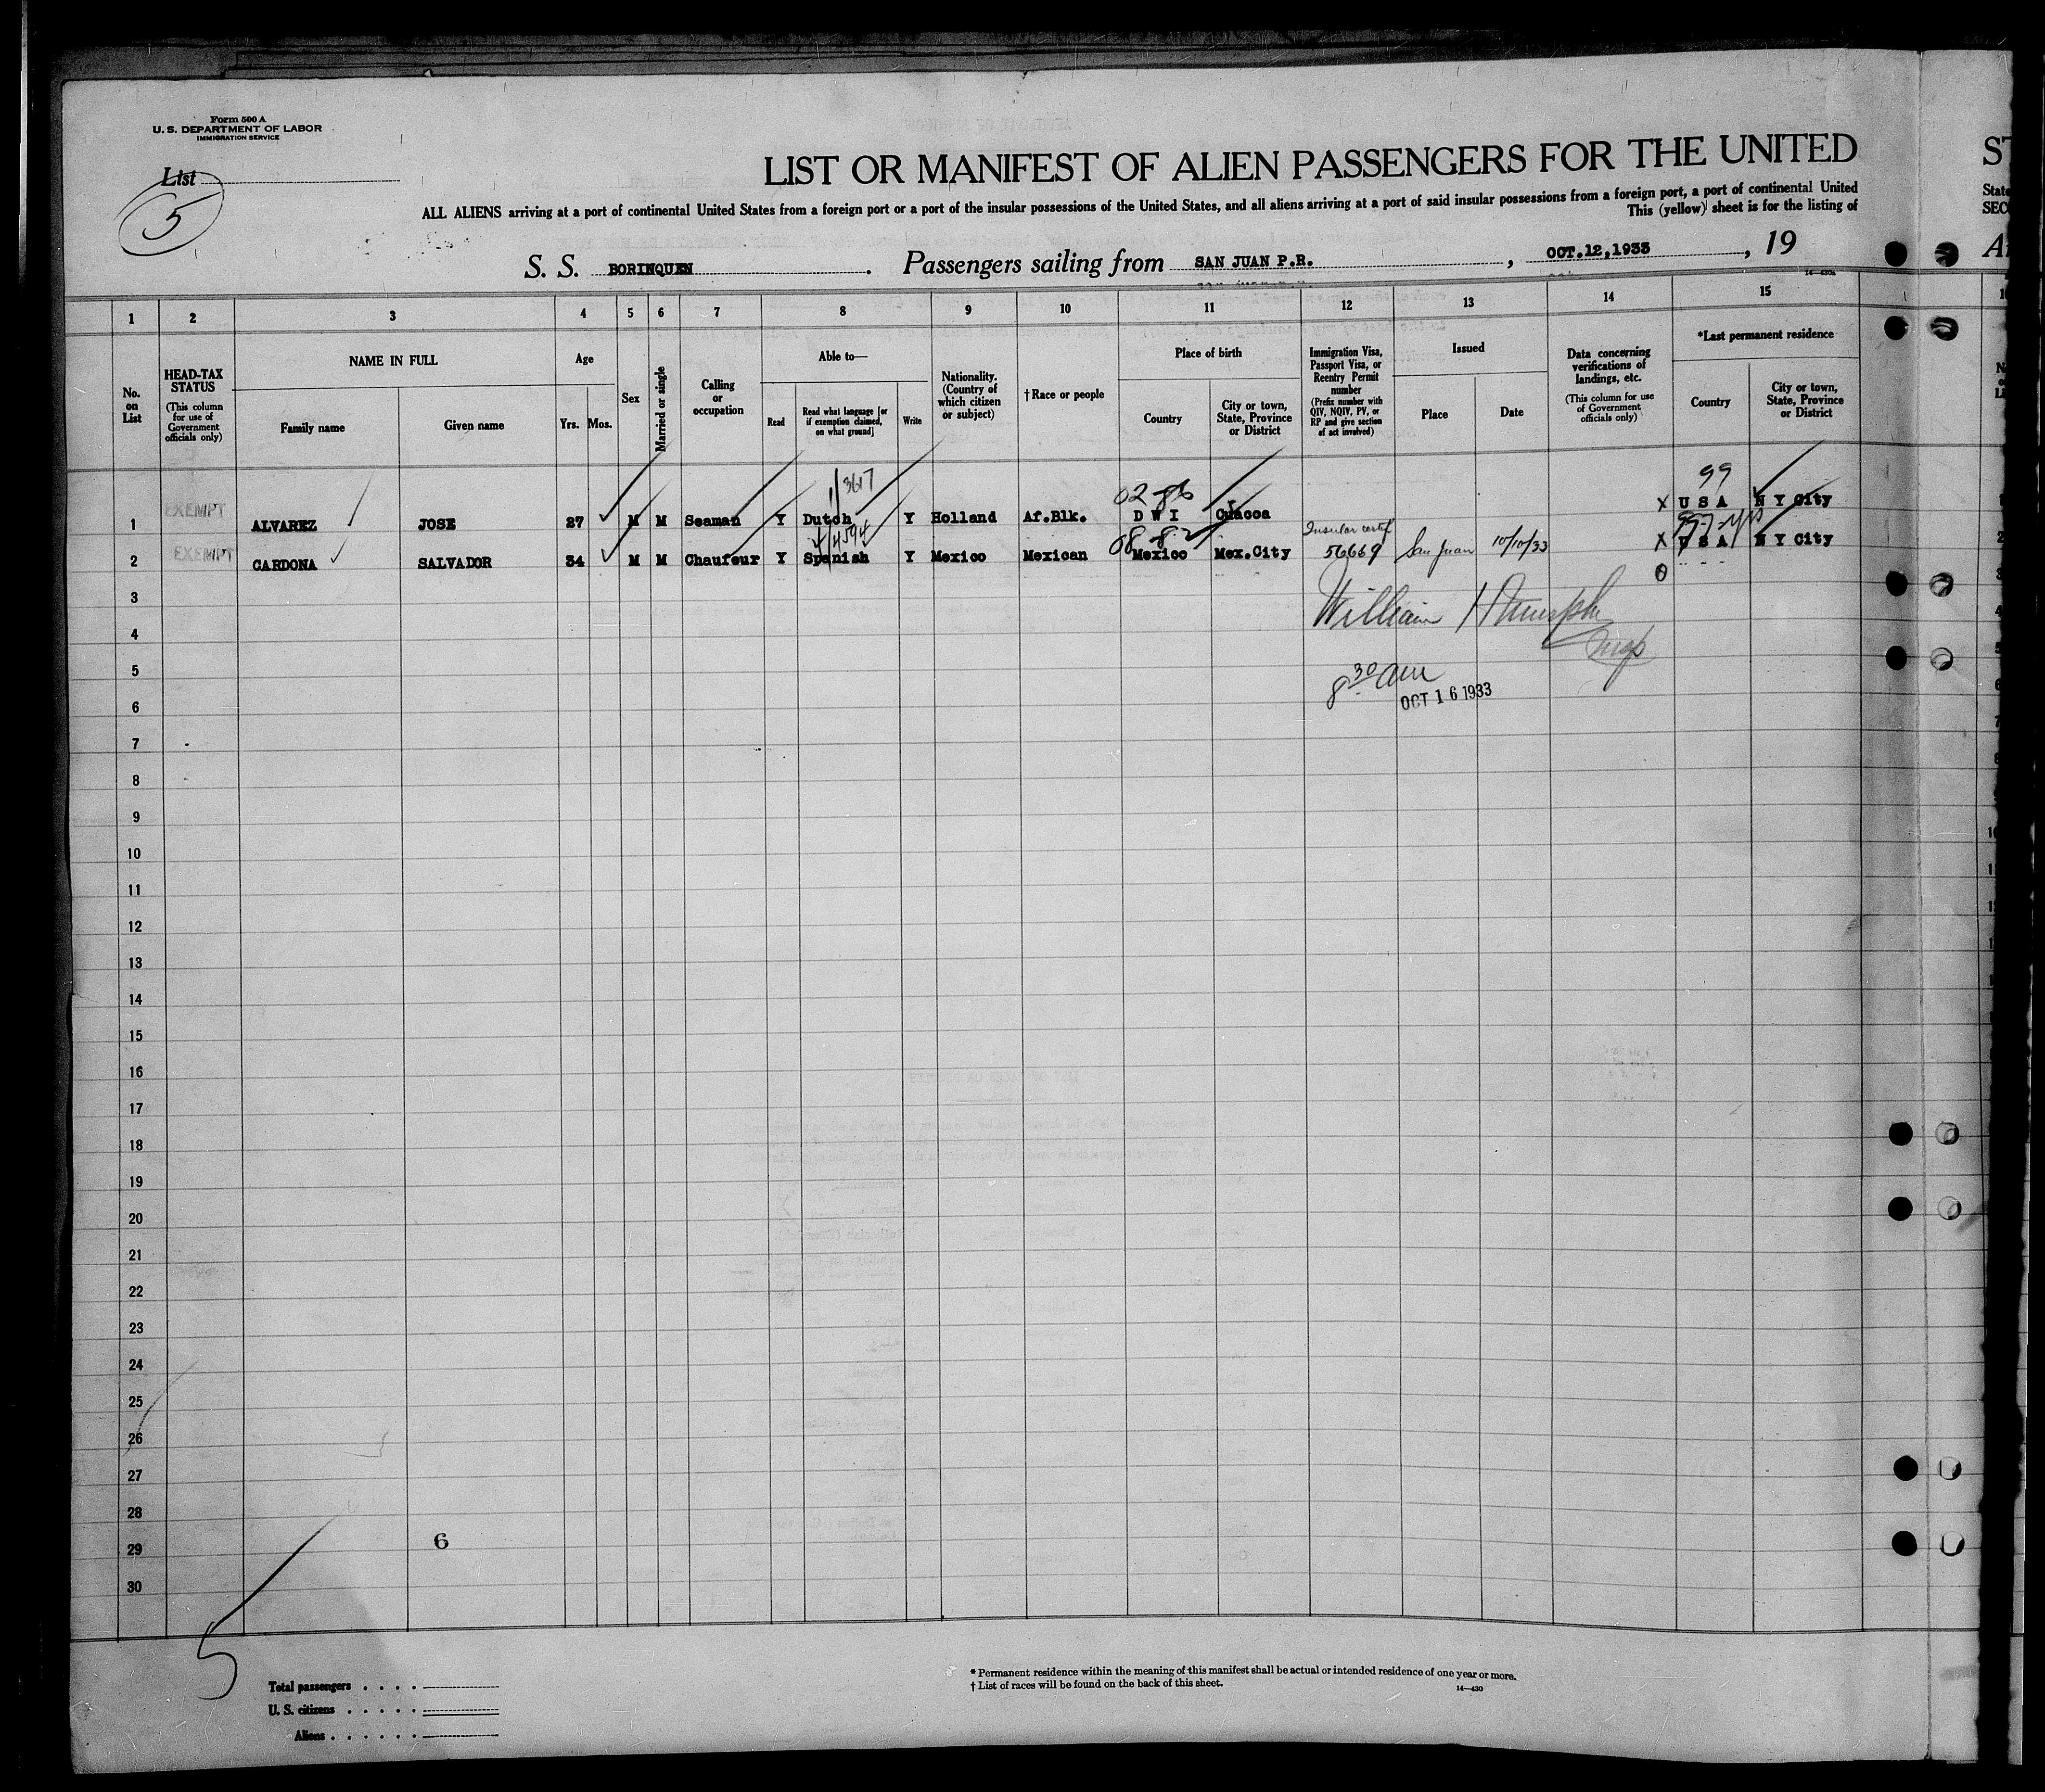 Form 500 A
U. S. DEPARTMENT OF LABOR
IMMIGRATION SERVICE
List
5
LIST OR MANIFEST OF ALIEN PASSENGERS FOR THE UNITED
ALL ALIENS arriving at a port of continental United States from a foreign port or a port of the insular possessions of the United States, and all aliens arriving at a port of said insular possessions from a foreign port, a port of continental United
This (yellow) sheet is for the listing of
S. S. BORINQUEN. Passengers sailing from SAN JUAN P.R., OCT.12,1933, 19
14—430a
1 2 3 4 5 6 7 8 9 10 11 12 13 14 15
No. on List
HEAD-TAX STATUS
(This column for use of Government officials only)
NAME IN FULL
Family name
Given name
Age
Yrs.
Mos.
Sex
Married or single
Calling or occupation
Able to—
Read
Read what language [or if exemption claimed, on what ground]
Write
Nationality. (Country of which citizen or subject)
†Race or people
Place of birth
Country
City or town, State, Province or District
Immigration Visa, Passport Visa, or Reentry Permit number
(Prefix number with QIV, NQIV, PV, or RP and give section of act involved)
Issued
Place
Date
Data concerning verifications of landings, etc.
(This column for use of Government officials only)
*Last permanent residence
Country
City or town, State, Province or District
3617
02
99
1 EXEMPT ALVAREZ JOSE 27 M M Seaman Y Dutch Y Holland Af.Blk. D W I X U S A N Y City
Insular certif
2 EXEMPT CARDONA SALVADOR 34 M M Chaufeur Y Spanish Y Mexico Mexican Mexico Mex.City 56669 San Juan 10/10/33 X U S A N Y City
3
William
4
5
8 30 am
6
OCT 16 1933
7
8
9
10
11
12
13
14
15
16
17
18
19
20
21
22
23
24
25
26
27
28
29
6
30
5
Total passengers
U. S. citizens
Aliens
* Permanent residence within the meaning of this manifest shall be actual or intended residence of one year or more.
† List of races will be found on the back of this sheet.
14—430